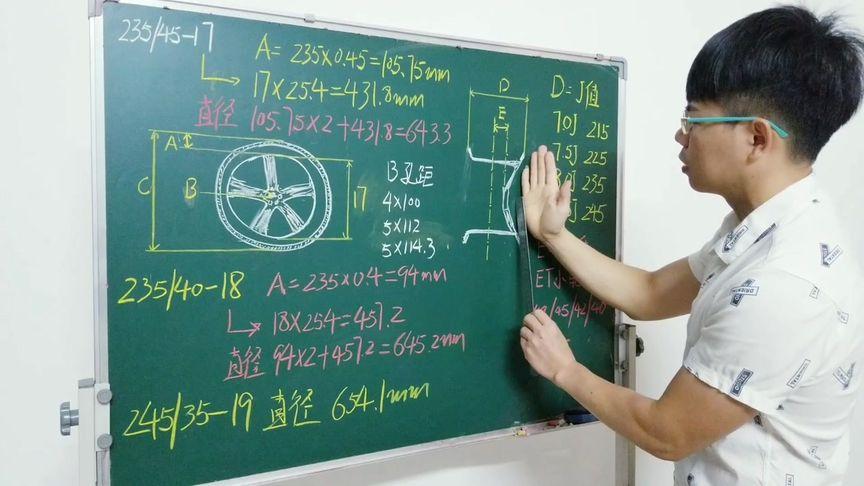 235/45-17
A=235×0.45=105.75mm
17×25.4=431.8mm
直径 105.75×2+431.8=643.3
A
C
B
17
B孔距
4×100
5×112
5×114.3
D
E
D=J值
7.0J 215
7.5J 225
235
245
235/40-18
A=235×0.4=94mm
18×25.4=457.2
直径 94×2+457.2=645.2mm
245/35-19 直径 654.1mm